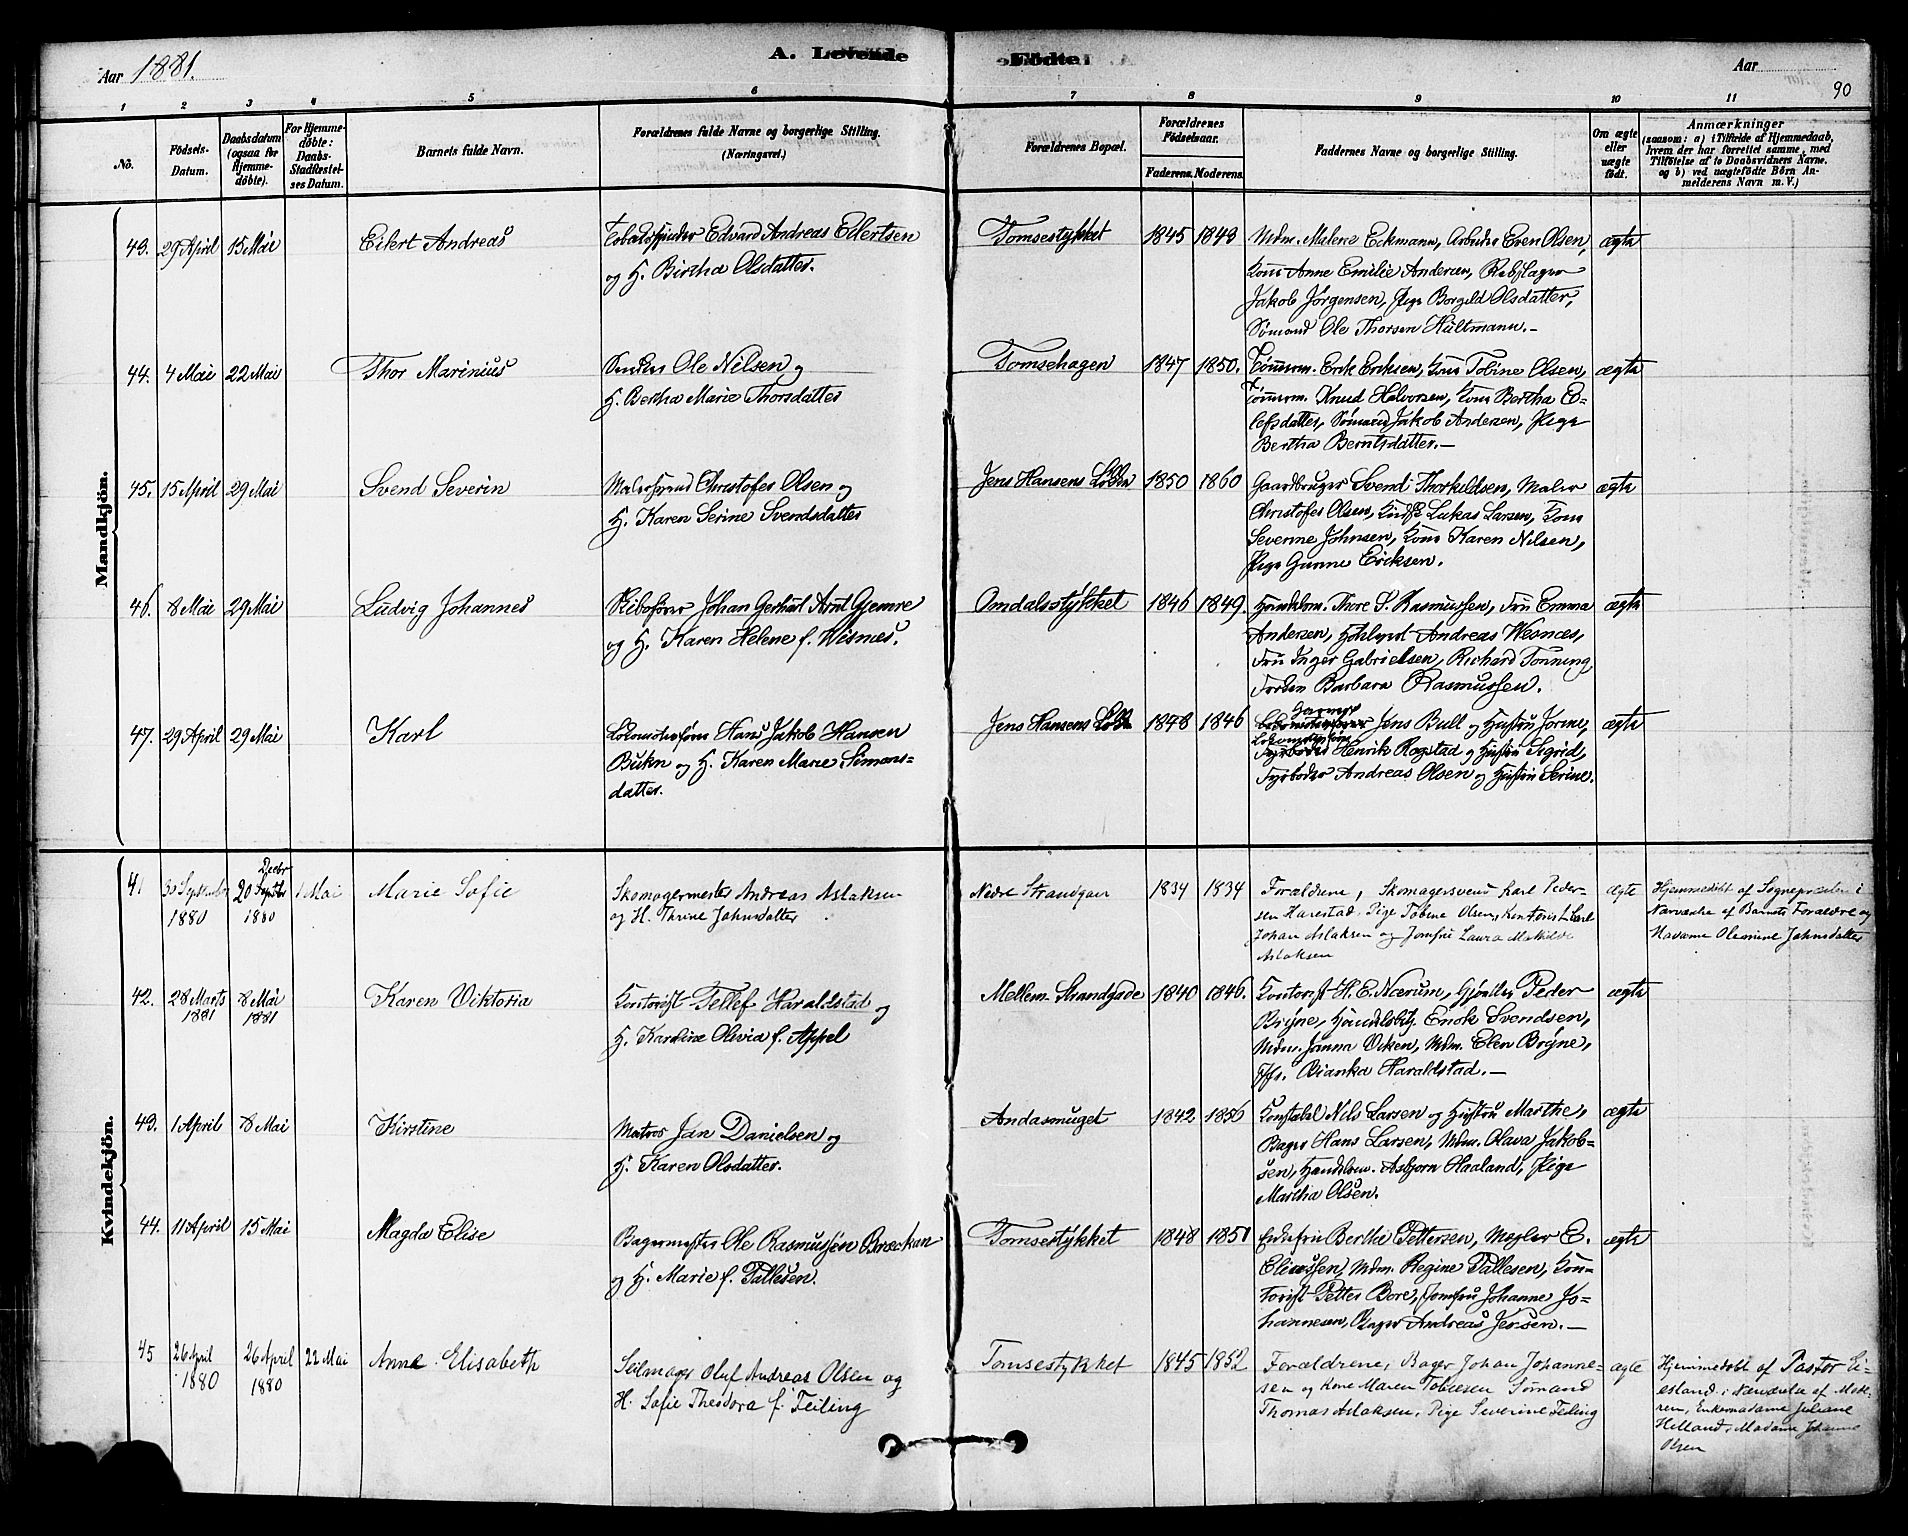 Aar 1881.
A. Levende
Fødte
Aar
90
1 2 3 4 5 6 7 8 9 10 11
No.
Fødsels-Datum.
Daabsdatum (ogsaa for Hjemme-døbte).
For Hjemme-døbte: Daabs-Stadfæstel-ses Datum.
Barnets fulde Navn.
Forældrenes fulde Navne og borgerlige Stilling. (Næringsvei.)
Forældrenes Bopæl.
Forældrenes Fødselsaar.
Faderens. Moderens.
Faddernes Navne og borgerlige Stilling.
Om ægte eller uægte født.
Anmærkninger (saasom: a) i Tilfælde af Hjemmedaab, hvem der har forrettet samme, med Tilføielse af to Daabsvidners Navne, og b) ved uægtefødte Børn An-melderens Navn m. V.)
Mandkjön.
43. 29 April 15 Mai Eilert Andreas
Edvard Andreas Eilertsen
og H. Birtha Olsdatter.
Tomsestykket 1845 1843
Mdm. Malene Eckmann, Arbeider Even Olsen,
Kone Anne Emilie Andersen, Rebslager
Jakob Jörgensen, Pige Borgild Olsdatter,
Sømand Ole Thorsen Hultmann.—
ægte
44. 4 Mai 22 Mai Thor Marinius
Ole Nilsen og
H. Bertha Marie Thorsdatter
Tomsehagen 1847 1850.
Tømrm. Erik Eriksen, Kone Tobine Olsen,
Tømrm. Knud Halvorsen, Kone Bertha E-
lefsdatter, Sømand Jakob Andersen, Pige
Bertha Berntsdatter.—
ægte
45. 15 April 29 Mai Svend Severin
Malersvend Christofer Olsen og
H. Karen Serine Svendsdatter
Jens Hansens 1850 1860
Gaardbruger Svend Thorkildsen, Maler
Christofer Olsen, Lukas Larsen, Kone
Severine Johnsen, Kone Karen Nilsen,
Pige Gunne Eriksen.
ægte
46. 8 Mai 29 Mai Ludvig Johannes
Skibsfører Johan Gerhard Arnt Gjemre
og H. Karen Helene f. Wisnes.
Omdalsstykket 1846 1849.
Handelsm. Thore S. Rasmussen, Fru Emma
Andersen, Andreas Wesnæs,
Fru Inger Gabrielsen, Richard Tonning,
Barbara Rasmussen.
ægte
47. 29 April 29 Mai Karl
Lokomotivfører Hans Jakob Hansen
Bukn og H. Karen Marie Simons-
datter.
Jens Hansens 1848 1846
Jens Bull og Hustru Jorine,
Lokomotivfører Henrik Rogstad og Hustru Sigrid,
Fyrbøder Andreas Olsen og Hustru Serine.
ægte
Kvindekjön.
41 30 September 1880 20 Decbr 1880 1 Mai Marie Sofie
Skomagermester Andreas Aslaksen
og H. Thrine Johnsdatter
Nedre Strandgate 1834 1834
Forældrene, Skomagersvend Karl Peder-
sen Harestad, Pige Tobine Olsen, Kontorist Carl
Johan Aslaksen og Jomfru Laura Mathilde
Aslaksen
ægte
Hjemmedøbt af Sognepræsten i
Nærværelse af Barnets Forældre og
Madame Olemine Johnsdatter
42. 28 Marts 1881 8 Mai 1881 Karen Viktoria
Kontorist Tellef Haraldstad og
H. Karoline Olivia f. Appel
Mellem Strandgade 1840 1846.
Kontorist H. E. Nærum, Peder
Bryne, Enok Svendsen,
Mdm. Janna Ocken, Mdm. Elen Bryne,
Bianka Haraldstad.—
ægte
43. 1 April 8 Mai Kirstine
Matros Jan Danielsen og
H. Karen Olsdatter.
Andasmuget 1842 1856
Konstabel Nils Larsen og Hustru Marthe,
Bager Hans Larsen, Mdm. Olava Jakob-
sen, Handelsm. Asbjørn Haaland, Pige
Martha Olsen.
ægte
44. 11 April 15 Mai Magda Elise
Bagermester Ole Rasmussen Brækan
og H. Marie f. Tallesen.
Tomsestykket 1848 1851
Enkefru Berthe Pettersen, Megler E.
Eliassen, Mdm. Regine Tallesen, Kon-
torist Petter Bore, Jomfru Johanne Jo-
hannesen, Bager Andreas Jensen.—
ægte
45 26 April 1880 26 April 1880 22 Mai Anna Elisabeth
Seilmager Oluf Andreas Olsen og
H. Sofie Theodora f. Feiling
Tomsestykket 1845 1852
Forældrene, Bager Johan Johanne-
sen og Kone Maren Tobiesen Sømand
Thomas Aslaksen, Pige Severine Feiling
ægte
Hjemmedøbt af Pastor Ei-
esland i Nærværelse af Mode-
ren, Enkemadame Juliane
Helland, Madame Johanne
Olsen